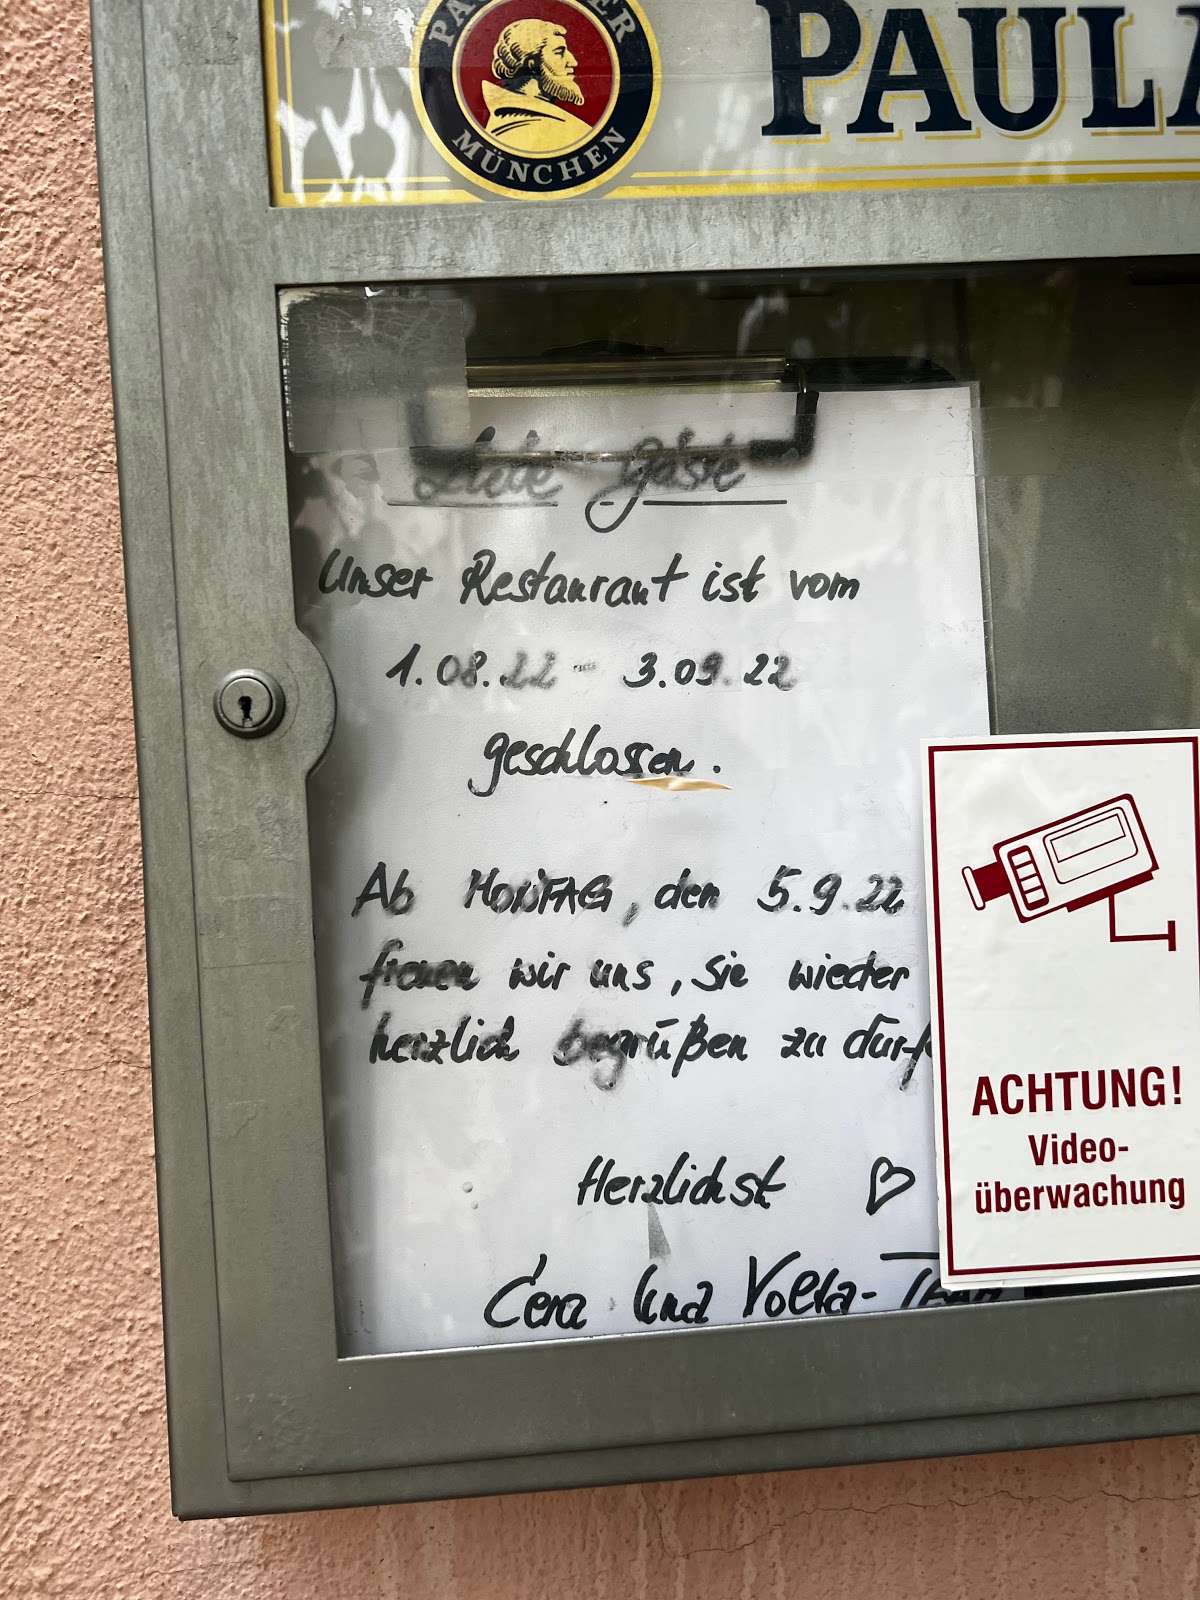 PAULANER
MÜNCHEN
PAULA
Liebe Gäste
Unser Restaurant ist vom
1.08.22 - 3.09.22
geschlossen.
Ab MONTAG, den 5.9.22
freuen wir uns, Sie wieder
herzlich begrüßen zu dürf
Herzlichst ♡
Cera und Volta-Team
ACHTUNG!
Video-
überwachung